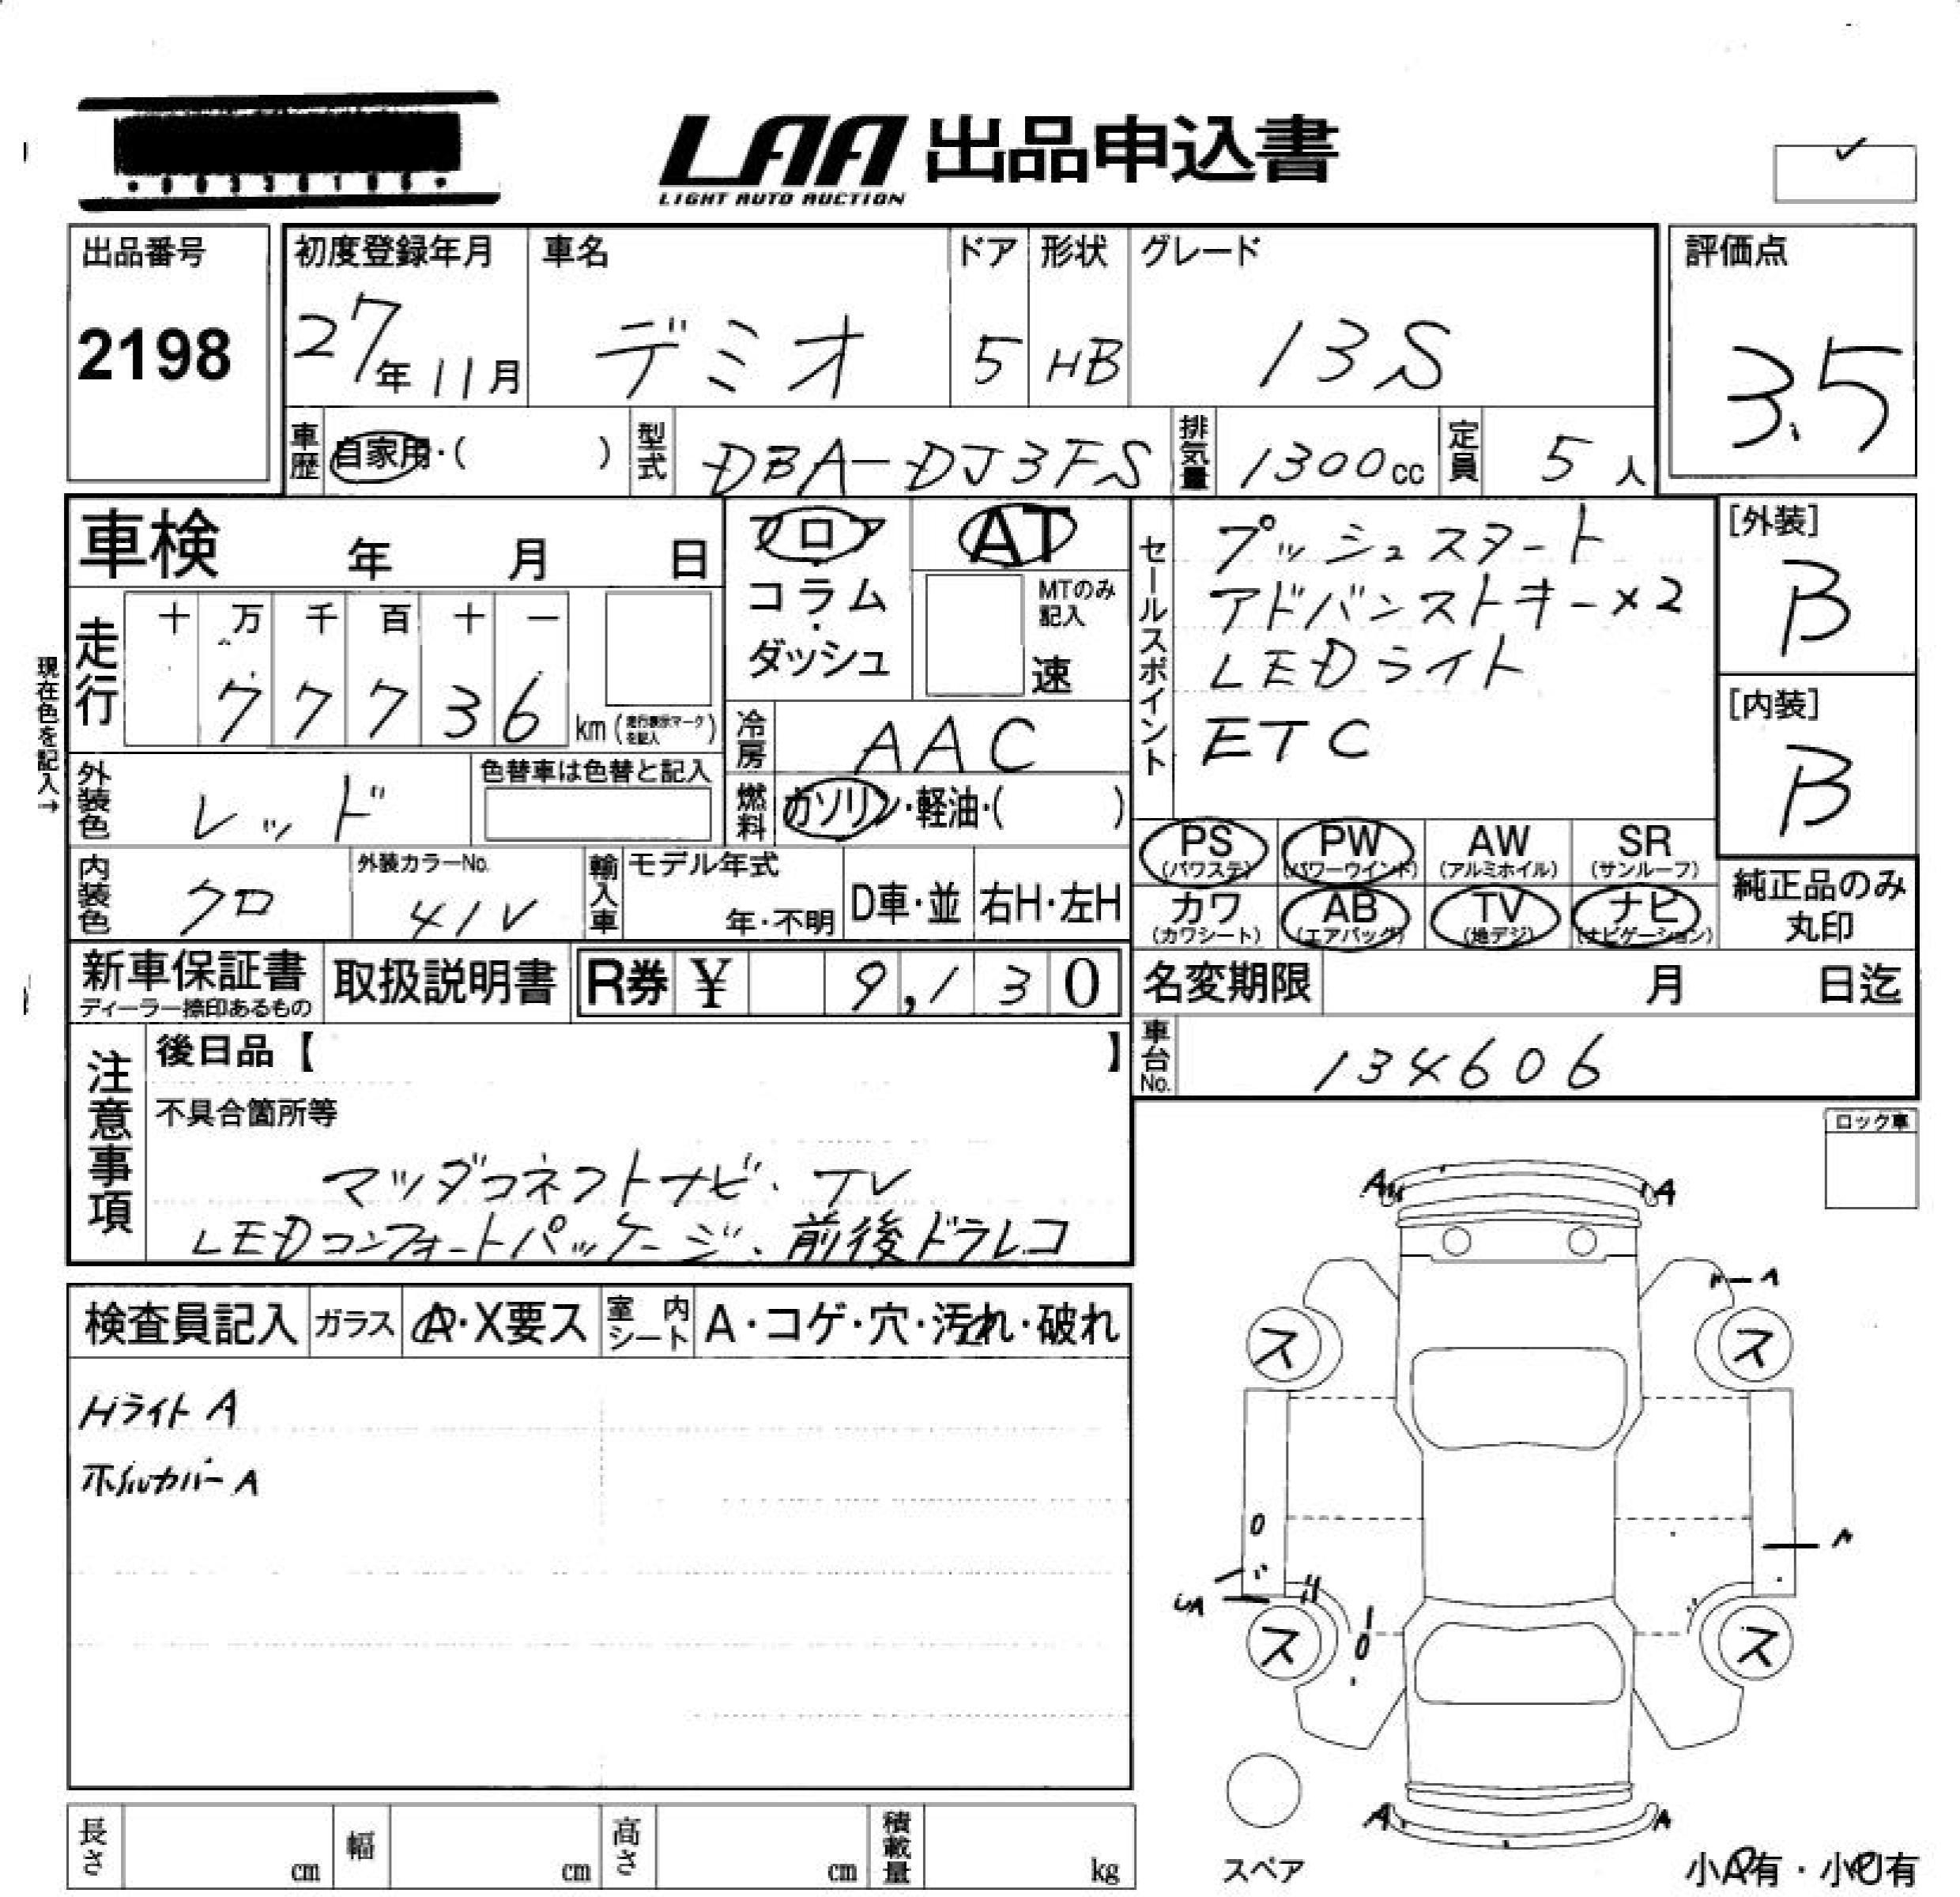 LAA 出品申込書
LIGHT AUTO AUCTION
出品番号
2198
初度登録年月
27年11月
車名
デミオ
ドア
5
形状
HB
グレード
13S
評価点
3.5
車歴
自家用・( )
型式
DBA-DJ3FS
排気量
1300cc
定員
5人
車検 年 月 日
フロア
・
コラム
・
ダッシュ
AT
MTのみ
記入
速
セールスポイント
プッシュスタート
アドバンストキー×2
LEDライト
ETC
[外装]
B
[内装]
B
現在色を記入→
走行
十 万 千 百 十 一
7 7 7 3 6
km (走行表示マークを記入)
冷房
AAC
外装色
レッド
色替車は色替と記入
燃料
ガソリン・軽油・( )
PS
(パワステ)
PW
(パワーウインド)
AW
(アルミホイル)
SR
(サンルーフ)
カワ
(カワシート)
AB
(エアバック)
TV
(地デジ)
ナビ
(ナビゲーション)
純正品のみ
丸印
内装色
クロ
外装カラーNo.
41V
輸入車
モデル年式
年・不明
D車・並
右H・左H
新車保証書
ディーラー捺印あるもの
取扱説明書
R券 ¥ 9,130
名変期限 月 日迄
車台No.
134606
注意事項
後日品【 】
不具合箇所等
マツダコネクトナビ、TV
LEDコンフォートパッケージ、前後ドラレコ
ロック車
検査員記入
ガラス
A・X要ス
室内シート
A・コゲ・穴・汚れ・破れ
Hライト A
ホイルカバー A
A A
A
ス ス
ス ス
A A
スペア
小A有・小U有
長さ cm
幅 cm
高さ cm
積載量 kg